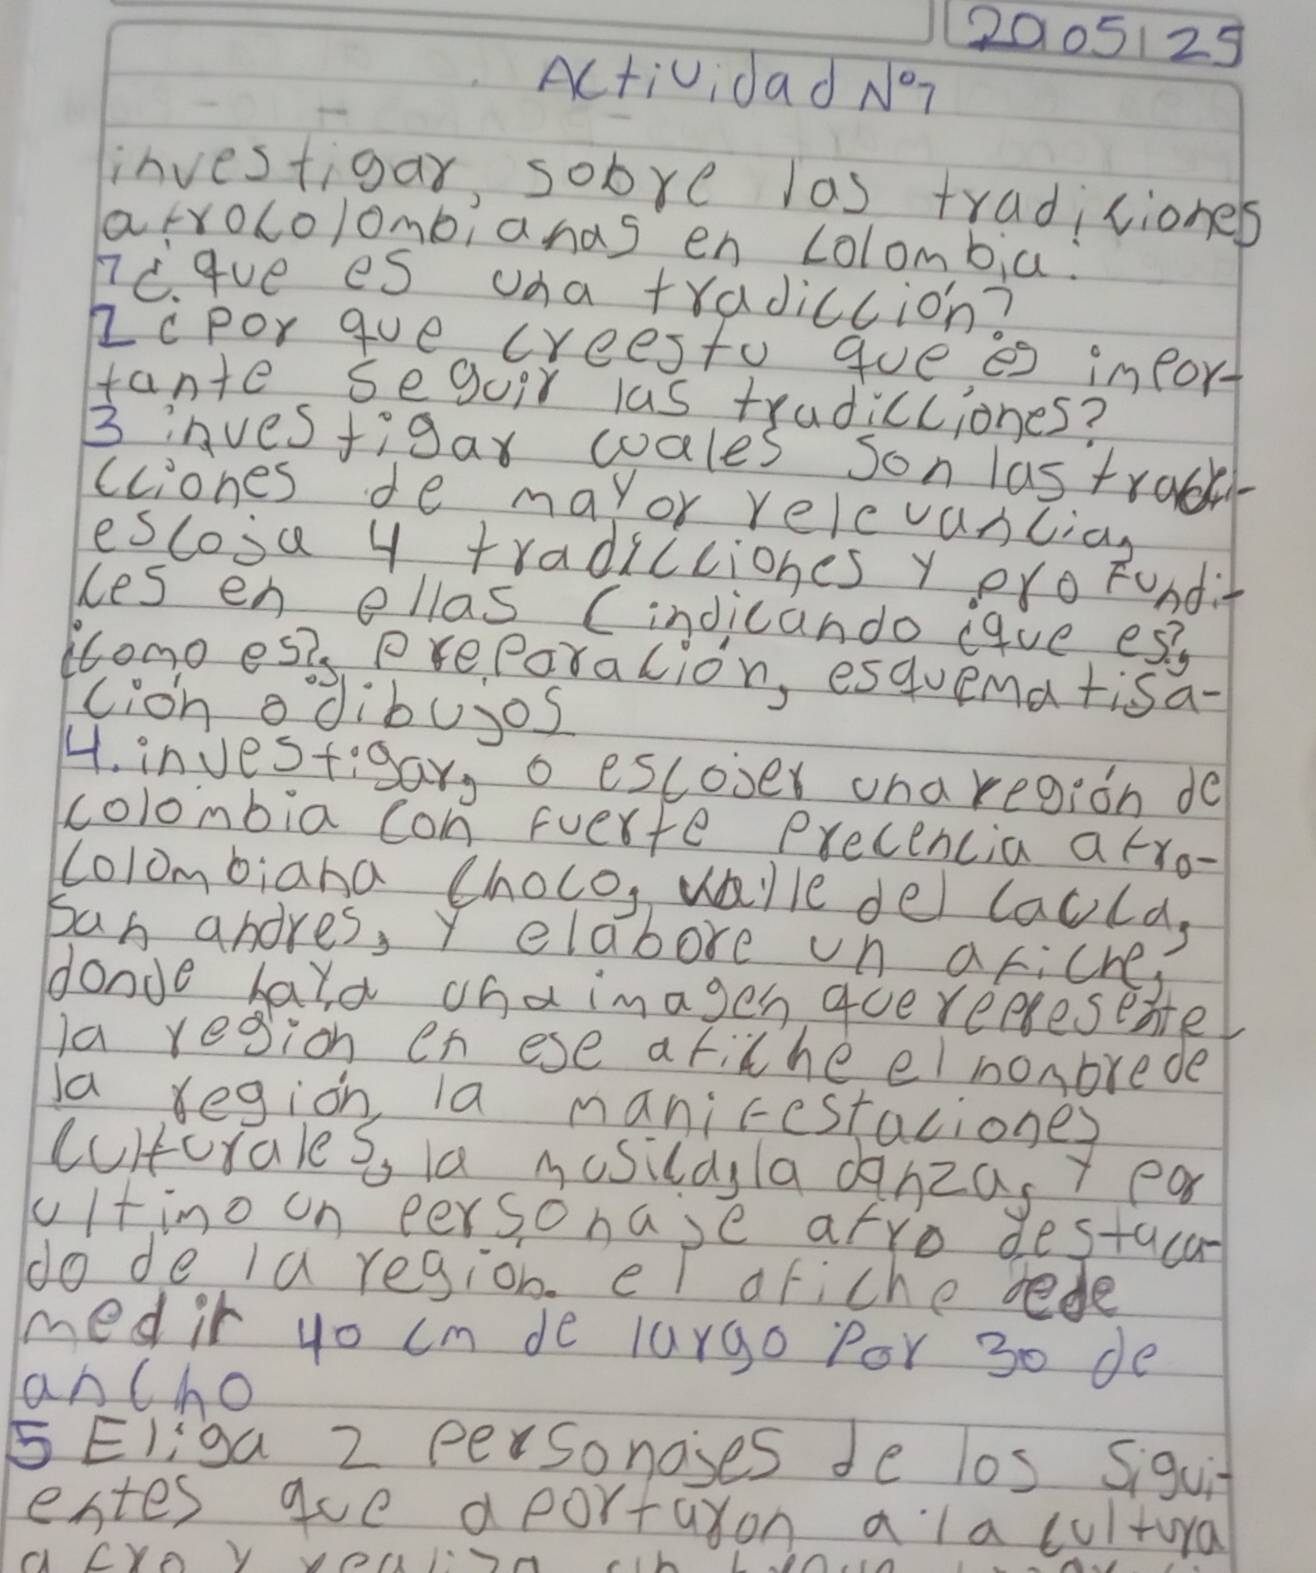 20 05 25
Actividad Nº7
investigar, sobre las tradiciones
afrocolombianas en colombia.
1¿que es una tradicción?
2¿por que creestu que es impor-
tante seguir las tradicciones?
3 investigar cuales son las tradi-
cciones de mayor relevancia,
escoja 4 tradicciones y profundi-
ces en ellas (indicando ¿que es?,
¿como es?, preparación, esquematisa-
ción o dibujos
4. investigar, o escojer una región de
colombia con fuerte precencia afro-
colombiana choco, valle del cauca,
san andres, y elabore un afiche,
donde haya una imagen que represente
la region en ese afiche el nombre de
la región, la manifestaciones
culturales, la musica, la danza, y por
ultimo un personaje afro destaca-
do de la region. el afiche dede
medir 40 cm de largo por 30 de
ancho
5 Eliga 2 personajes de los sigui-
entes que aportaron a la cultura
afro y realiza un